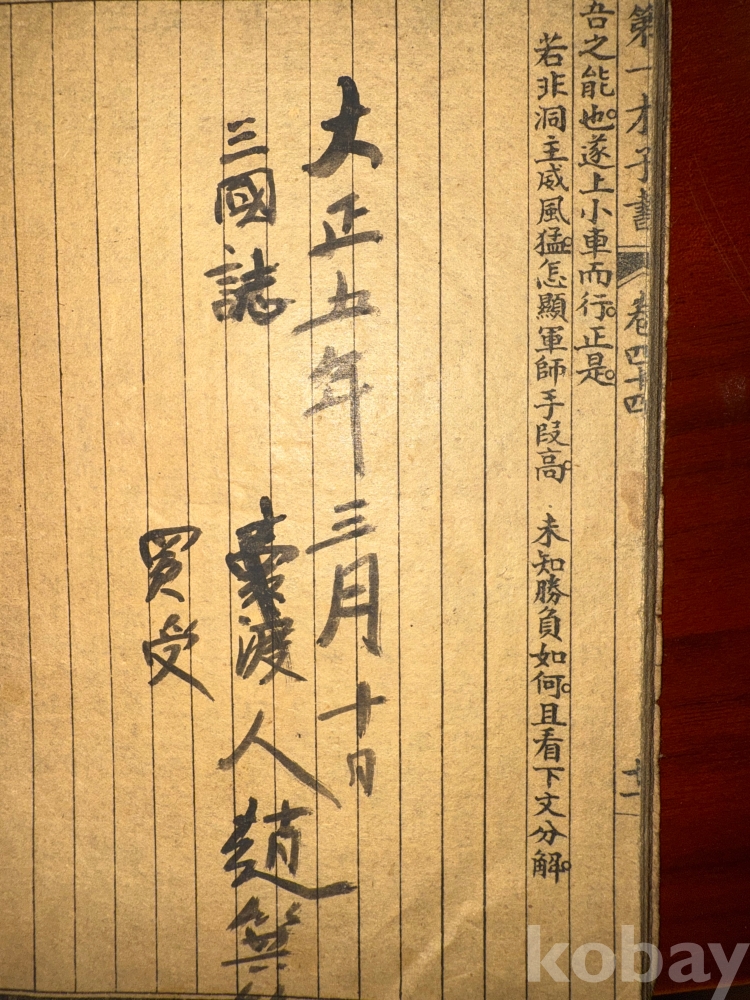 第一才子書 卷四十四 十一
吾之能也。遂上小車而行。正是。
若非洞主威風猛。怎顯軍師手段高。 未知勝負如何。且看下文分解。
大正十年三月十日
三國誌
賣渡人趙
買受
kobay